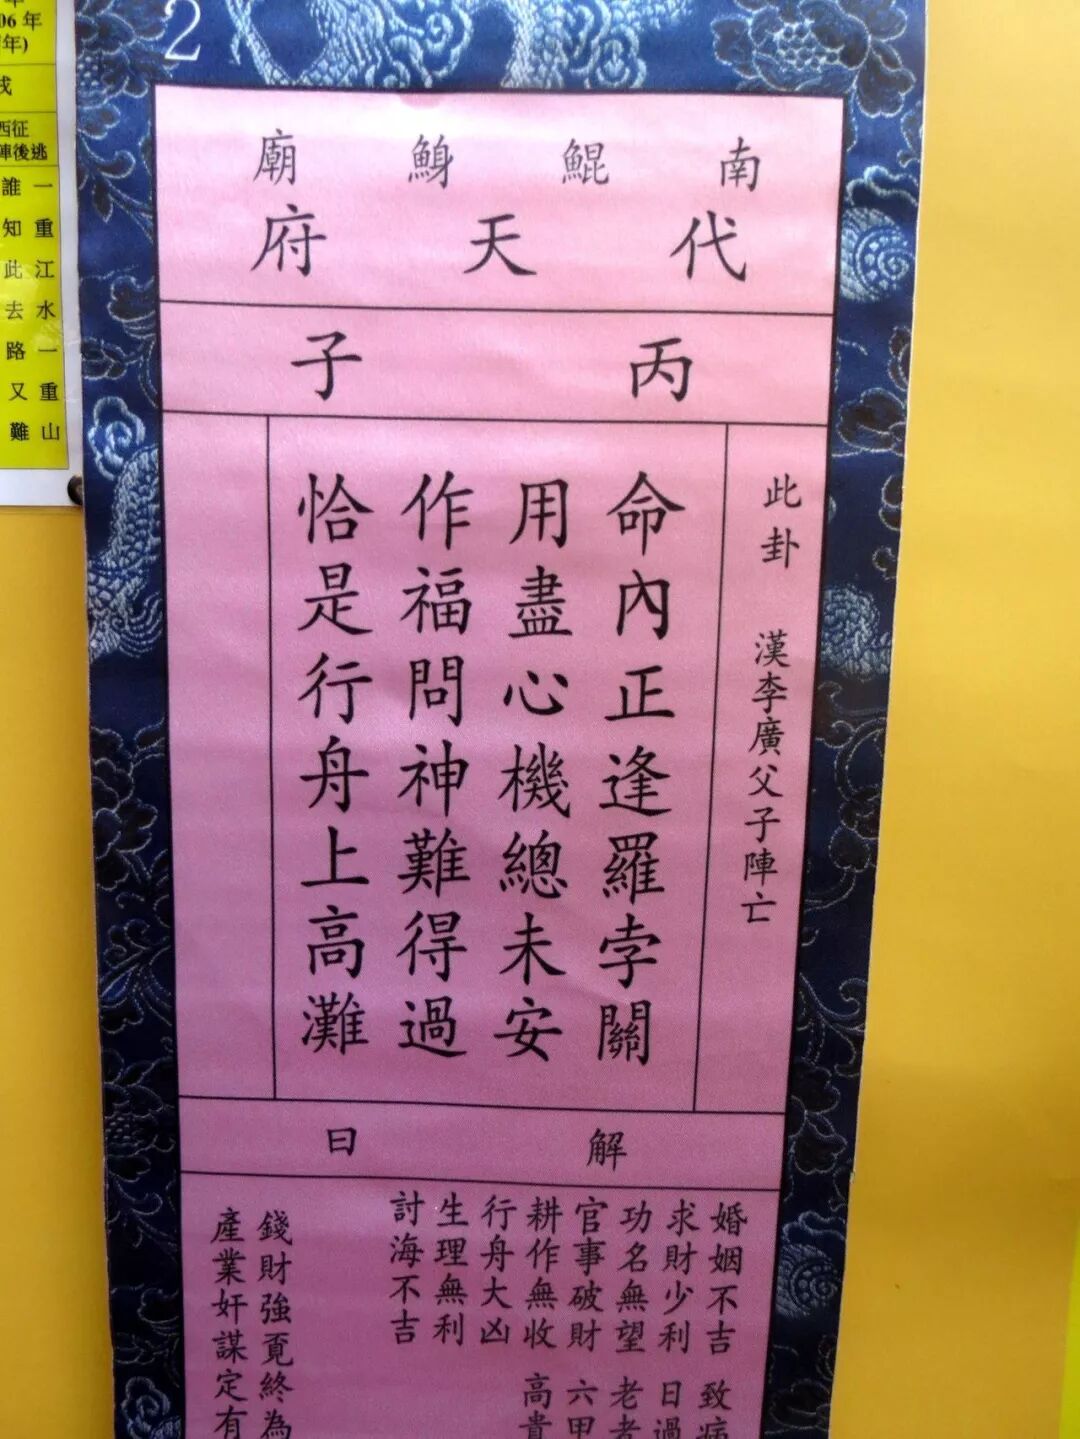 2
南鯤鯓廟
代天府
丙子
此卦 漢李廣父子陣亡
命內正逢羅孛關
用盡心機總未安
作福問神難得過
恰是行舟上高灘
解曰
婚姻不吉 致病
求財少利 日過
功名無望 老者
官事破財 六甲
耕作無收 高貴
行舟大凶
生理無利
討海不吉
錢財強覔終為
產業奸謀定有
年
06年
年)
戌
西征
陣後逃
一重江水一重山
誰知此去路又難